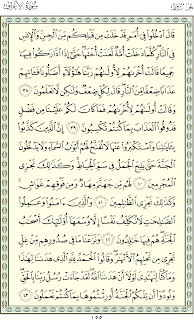 الجزء الثامن سورة الأعراف
قَالَ ٱدْخُلُوا۟ فِىٓ أُمَمٍ قَدْ خَلَتْ مِن قَبْلِكُم مِّنَ ٱلْجِنِّ وَٱلْإِنسِ
فِى ٱلنَّارِ كُلَّمَا دَخَلَتْ أُمَّةٌ لَّعَنَتْ أُخْتَهَا حَتَّىٰٓ إِذَا ٱدَّارَكُوا۟ فِيهَا
جَمِيعًا قَالَتْ أُخْرَىٰهُمْ لِأُولَىٰهُمْ رَبَّنَا هَٰٓؤُلَآءِ أَضَلُّونَا فَـَٔاتِهِمْ
عَذَابًا ضِعْفًا مِّنَ ٱلنَّارِ قَالَ لِكُلٍّ ضِعْفٌ وَلَٰكِن لَّا تَعْلَمُونَ ٣٨
وَقَالَتْ أُولَىٰهُمْ لِأُخْرَىٰهُمْ فَمَا كَانَ لَكُمْ عَلَيْنَا مِن فَضْلٍ
فَذُوقُوا۟ ٱلْعَذَابَ بِمَا كُنتُمْ تَكْسِبُونَ ٣٩ إِنَّ ٱلَّذِينَ كَذَّبُوا۟
بِـَٔايَٰتِنَا وَٱسْتَكْبَرُوا۟ عَنْهَا لَا تُفَتَّحُ لَهُمْ أَبْوَٰبُ ٱلسَّمَآءِ وَلَا يَدْخُلُونَ
ٱلْجَنَّةَ حَتَّىٰ يَلِجَ ٱلْجَمَلُ فِى سَمِّ ٱلْخِيَاطِ وَكَذَٰلِكَ نَجْزِى
ٱلْمُجْرِمِينَ ٤٠ لَهُم مِّن جَهَنَّمَ مِهَادٌ وَمِن فَوْقِهِمْ غَوَاشٍ
وَكَذَٰلِكَ نَجْزِى ٱلظَّٰلِمِينَ ٤١ وَٱلَّذِينَ ءَامَنُوا۟ وَعَمِلُوا۟
ٱلصَّٰلِحَٰتِ لَا نُكَلِّفُ نَفْسًا إِلَّا وُسْعَهَآ أُو۟لَٰٓئِكَ أَصْحَٰبُ
ٱلْجَنَّةِ هُمْ فِيهَا خَٰلِدُونَ ٤٢ وَنَزَعْنَا مَا فِى صُدُورِهِم مِّنْ غِلٍّ
تَجْرِى مِن تَحْتِهِمُ ٱلْأَنْهَٰرُ وَقَالُوا۟ ٱلْحَمْدُ لِلَّهِ ٱلَّذِى هَدَىٰنَا لِهَٰذَا
وَمَا كُنَّا لِنَهْتَدِىَ لَوْلَآ أَنْ هَدَىٰنَا ٱللَّهُ لَقَدْ جَآءَتْ رُسُلُ رَبِّنَا بِٱلْحَقِّ
وَنُودُوٓا۟ أَن تِلْكُمُ ٱلْجَنَّةُ أُورِثْتُمُوهَا بِمَا كُنتُمْ تَعْمَلُونَ ٤٣
١٥٥